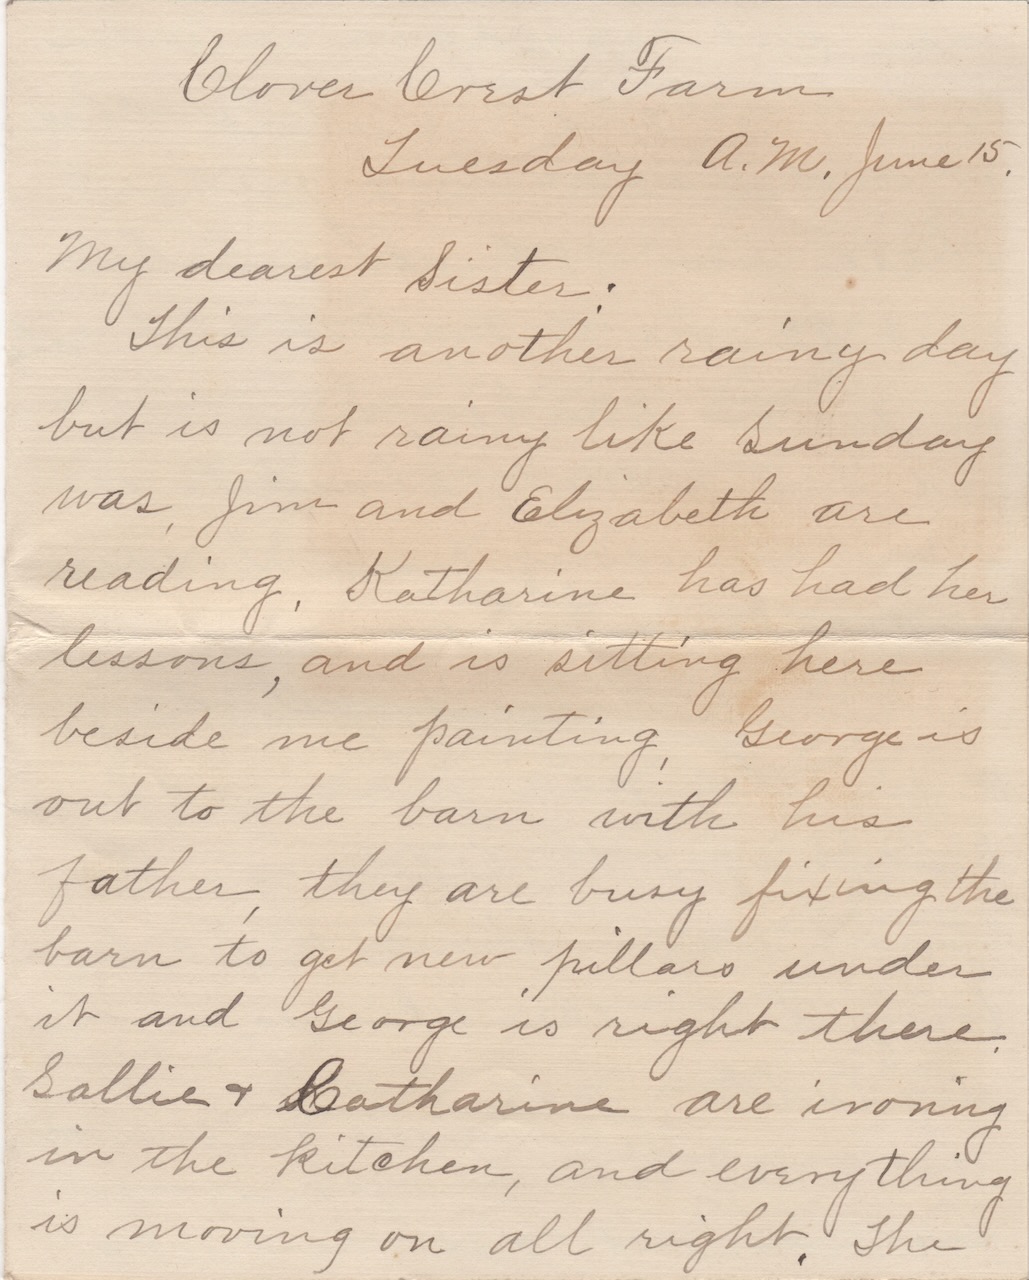 Clover Crest Farm
Tuesday A.M. June 15.
My dearest Sister:
This is another rainy day
but is not rainy like Sunday
was, Jim and Elizabeth are
reading, Katharine has had her
lessons, and is sitting here
beside me painting, George is
out to the barn with his
father, they are busy fixing the
barn to get new pillars under
it and George is right there.
Sallie & Catharine are ironing
in the kitchen, and everything
is moving on all right. The